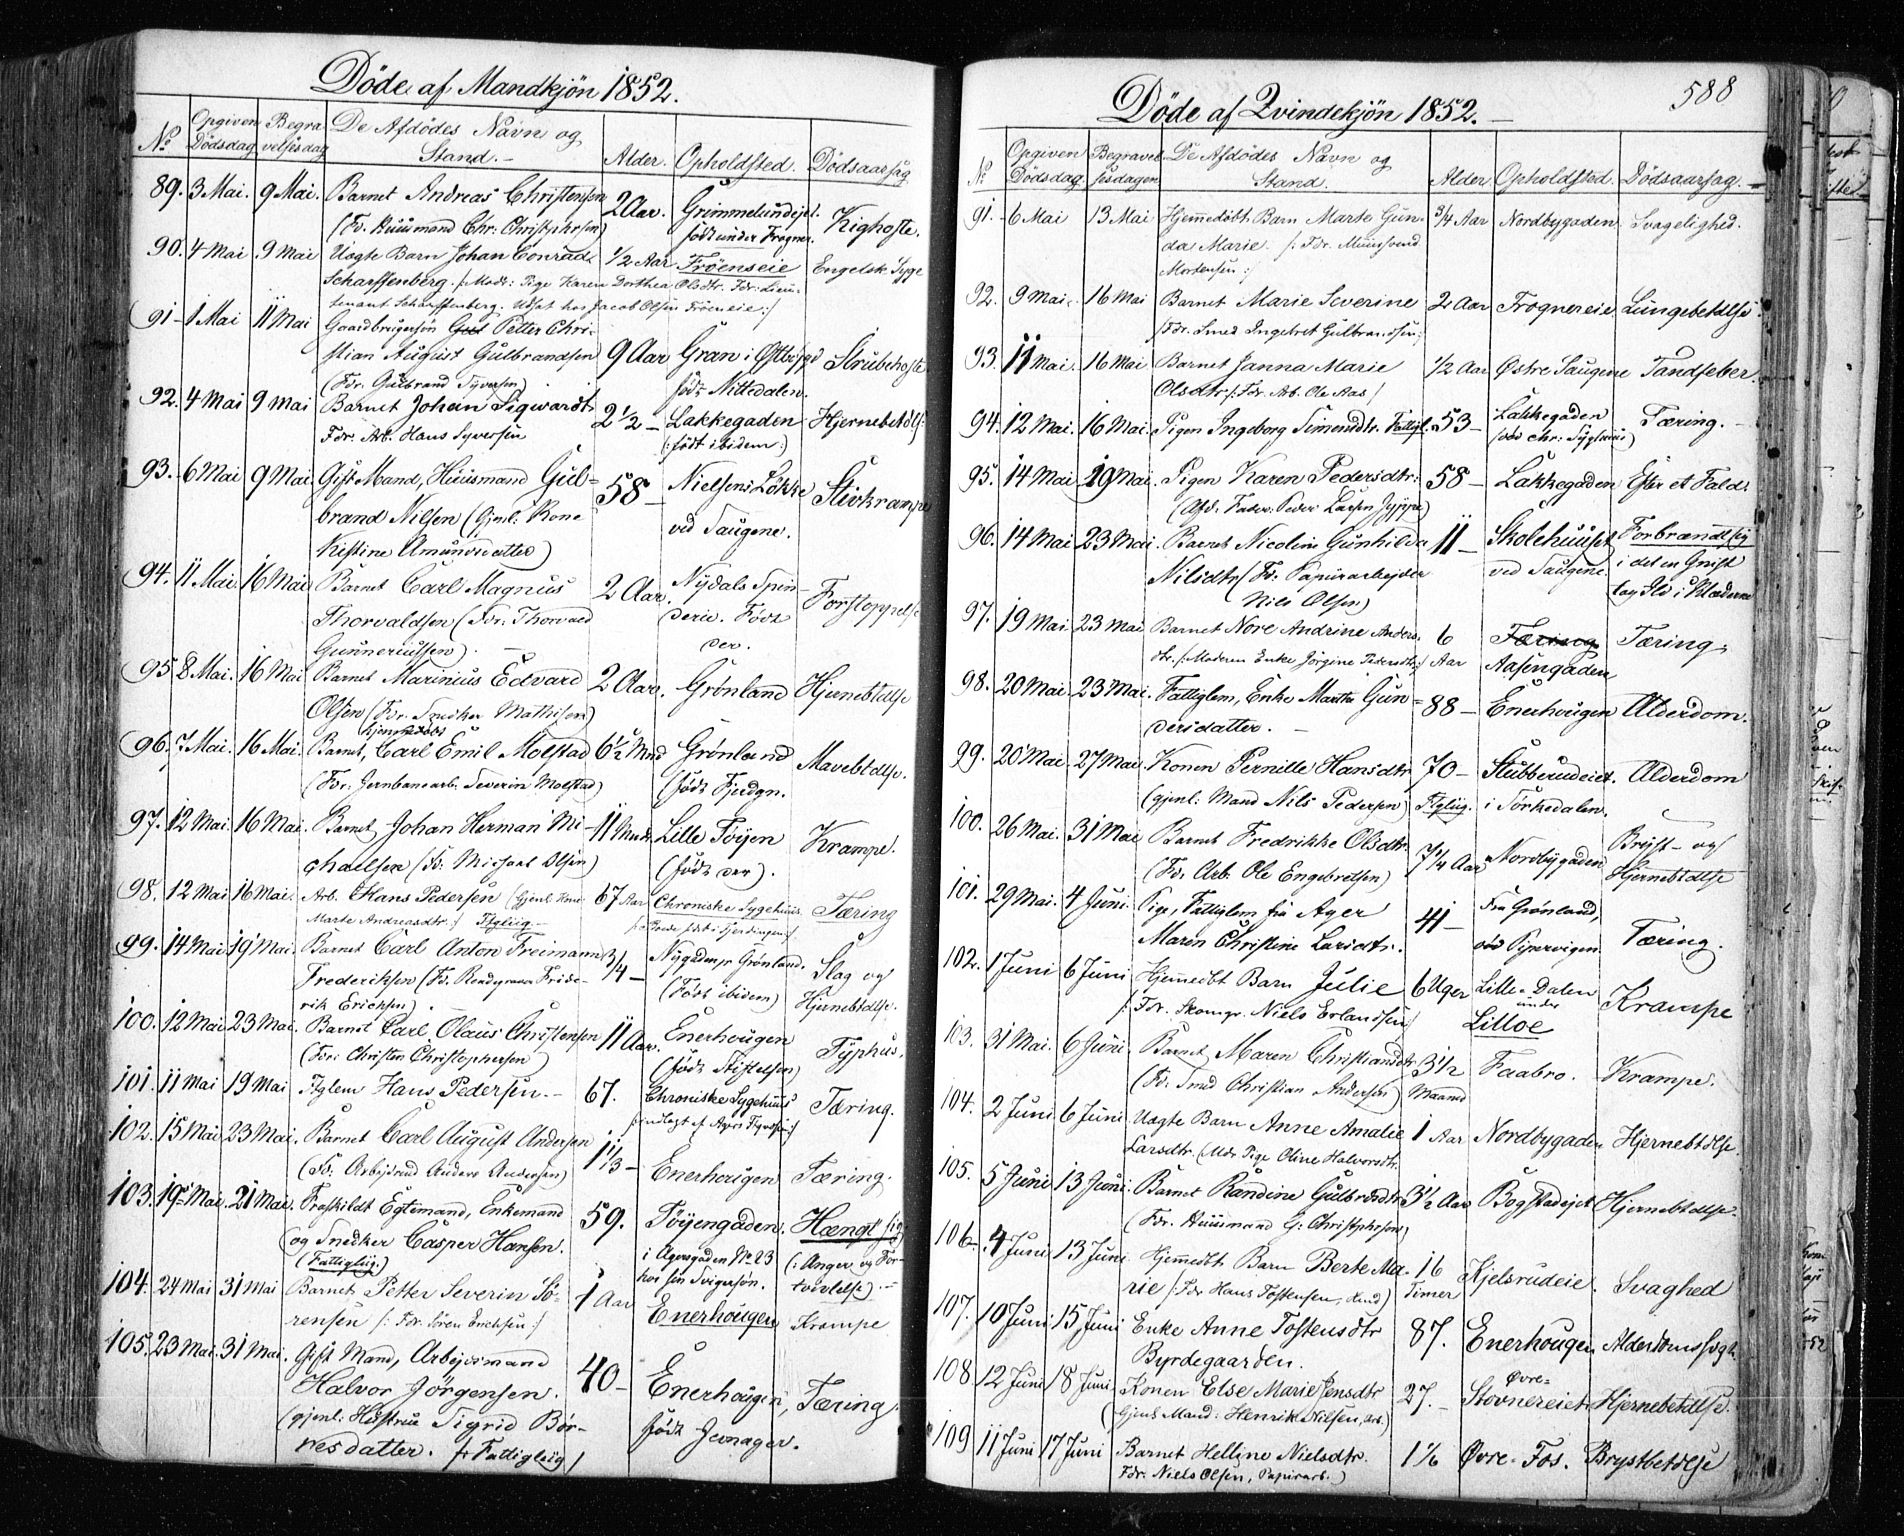 Döde af Mandkjön 1852.
No Opgiven Dödsdag Begravelsesdag De Afdödes Navn og Stand. Alder. Opholdsted. Dödsaarsag
89. 3 Mai. 9 Mai. Barnet Andreas Christensen 2 Aar. Grimmelundejet. Kighoste.
(Fr. Huusmand Chr: Christophersen) född under Frogner.
90. 4 Mai 9 Mai Uægte Barn Johan Conrad 1/2 Aar Fröenseie Engelsk Syge
Scharffenberg. /: Modr: Pige Karen Dorthea Olsdtr. Fdr: Lieu-
tenant Scharffenberg. Udsat hos Jacob Olsen Fröeneie :/
91 1 Mai 11 Mai Gaardbrugersøn Petter Chri-
stian August Gulbrandsen 9 Aar Gran i Østbygd Strubehoste
(Fdr. Gulbrand Syversen) född Nittedalen.
92. 4 Mai 9 Mai Barnet Johan Sigwardt 2 1/2 Lakkegaden Hjernebetdls:
Fdr. Arb. Hans Syversen (: född ibidem :)
93. 6 Mai 9 Mai. Gift Mand, Huusmand Gul- 58 Nielsens Løkke Stivkrampe
brand Nilsen (Gjenl: Kone ved Saugene.
Kistine Amundsdatter)
94. 11 Mai 16 Mai Barnet Carl Magnus 2 Aar. Nydals Spin- Forstoppelse
Thorvaldsen (Fdr: Thorvald derie. Född
Gunneriussen). der.
95 8 Mai. 16 Mai Barnet Marinius Edvard 2 Aar. Grönland Hjernebtdlse
Olsen (Fdr. Snedker Mathisen)
Hjemedöbt
96. 7 Mai. 16 Mai. Barnet, Carl Emil Molstad 6 1/2 Mnd Grönland Mavebtdlse.
(Fdr. Jernbanearb. Severin Molstad) (född Fjerdgn.
97. 12 Mai. 16 Mai. Barnet, Johan Herman Mi- 11 Mndr Lille Töyen Krampe.
chaelsen (Fd. Michael Olsen) (född der).
98. 12 Mai 16 Mai. Arb. Hans Pedersen (Gjenl. Kone 67 Aar Chroniske Sygehuus Tæring
Marte Andreasdtr :/ Ftgliig
99. 14 Mai 19 Mai. Barnet Carl Anton Freimann 3/4 Nygaden pr Grönland. Slag og
Frederiksen (Fd. Rendegraver Fride- (Född ibidem) Hjernebtdlse.
rik Ericksen).
100. 12 Mai 23 Mai. Barnet Carl Olaus Christensen 11 Aar. Enerhougen Typhus.
(Fdr: Christen Christophersen) (född Stiftelsen)
101. 11 Mai 19 Mai Ftglem Hans Pedersen. 67. Chroniske Sygehuus Tæring.
102. 15 Mai 23 Mai. Barnet Carl August Andersen 1 1/3 Enerhougen Tæring.
(Fd. Arbejdsmd Anders Andersen)
103. 19 Mai. 21 Mai. Fraskildt Egtemand, Enkemand 59. Töyengaden. Hængt sig
og Snedker Casper Hansen. i Agersgaden No 23 (: Anger og For-
(Fattigliig.) hos sin Svigersön. tvivlelse).
104. 24 Mai 31 Mai Barnet Petter Severin Sö- 1 Aar Enerhougen Krampe
rensen /: Fdr. Sören Ericksen :/
105. 23 Mai. 31 Mai. Gift Mand, Arbejdsmand 40 Enerhougen, Tæring.
Halvor Jörgensen. född Jevnager.
(gjenl: Hustrue Sigrid Bör-
resdatter. /: Fattigliig /
588
Döde af Qvindekjön 1852.
No Opgiven Dödsdag Begravelsesdagen De Afdödes Navn og Stand. Alder Opholdsted. Dödsaarsag.
91. 6 Mai 13 Mai Hjemedöbt Barn Marte Gun- 3/4 Aar Nordbygaden Svagelighed.
da Marie. /: Fdr. Muursvend
Mortensen :/
92. 9 Mai. 16 Mai Barnet Marie Severine 2 Aar Frognereie Lungebetdlse.
/Fdr. Smed Ingebret Gulbrandsen :/
93. 11 Mai. 16 Mai Barnet Janna Marie 1/2 Aar Østre Saugene Tandfeber.
Olsdtr /: Fdr. Arb. Ole Aas /
94. 12 Mai. 16 Mai. Pigen Ingeborg Simensdtr. Fattigl. 53 Lakkegaden Tæring.
95. 14 Mai 19 Mai. Pigen Karen Pedersdtr: 58 Lakkegaden Efter et Fald.
(Afd. Fader: Peder Larsen Jyppe)
96. 14 Mai 23 Mai. Barnet Nicoline Gunhilda 11 Skolehuuset Forbrændt sig
Nilsdtr (Fd. Papirarbejder ved Saugene. i det en Gnist
Nils Olsen) tog Ild i Klæderne
97. 19 Mai 23 Mai Barnet Nore Andrine Anders- 6 Tæring Tæring.
dtr. /: Moderen Enke Jörgine Pedersdtr :/ Aar Aasengaden
98. 20 Mai 23 Mai. Fattiglem, Enke Martha Gun- 88 Enerhougen Alderdom.
dersdatter.
99. 20 Mai. 27 Mai. Konen Pernille Hansdtr 70 Stubberudeiet. Alderdom
(gjenl: Mand Nils Pedersen) Ftgliig. i Sörkedalen.
100. 26 Mai. 31 Mai Barnet Fredrikke Olsdtr. 7 1/4 Aar Nordbygaden Bryst- og
(Fd. Arb. Ole Engebretsen) Hjernebtdlse
101. 29 Mai. 4 Juni. Pige, Fattiglem fra Ager 41 Fra Grönland, Tæring.
Maren Christine Larsdtr. ved Pipervigen.
102. 1 Juni 6 Juni Hjemedbt Barn Julie 6 Uger Lille-Dalen Krampe
/: Fdr. Skomgr. Niels Erlandsen :/ under Lilloe
103. 31 Mai. 6 Juni. Barnet, Maren Christiansdtr 3 1/2 Faabro. Krampe.
(Fd. Smed Christian Andersen) Maaned
104. 2 Juni 6 Juni Uægte Barn Anne Amalie 1 Aar Nordbygaden Hjernebtdlse.
Larsdtr. (Mdr Pige Oline Halvorsdtr.
105. 5 Juni 13 Juni. Barnet Randine Gulbrdsdtr 3 1/2 Aar Bogstadejet Hjernebtdlse.
(Fdr. Huusmand G: Christophersen)
106. 4 Juni 13 Juni. Hjemedbt Barn Berte Ma- 16 Kjelsrudeie. Svaghed
rie /: Fdr Hans Tostensen, Hmd) Timer
107. 10 Juni 15 Juni Enke Anne Tostensdtr 87. Enerhougen Alderdomssvgh.
Byrdegaarden.
108 12 Juni 18 Juni Konen Else Marie Jensdtr 27. Øvre- Stovnereiet Hjernebetdlse.
(Gjenl. Mand: Henrik Nilsen, Arb.)
109 11 Juni 17 Juni Barnet Helline Nielsdtr. 1 1/6 Øvre-Fos. Brystbetdlse
Fdr. Niels Olsen, Papirarb.)